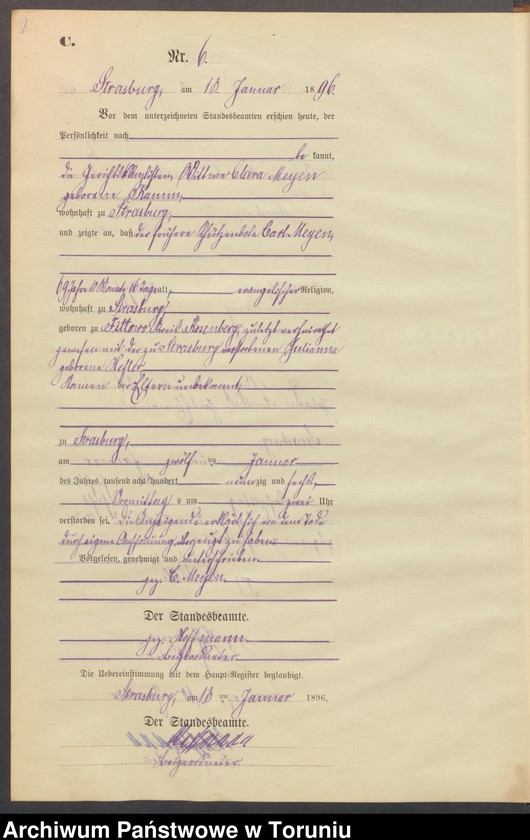 C.
Nr. 6.
Strasburg, am 13. Januar 1896.
Vor dem unterzeichneten Standesbeamten erschien heute, der
Persönlichkeit nach
be kannt,
die Wittwe Clara Meyen
geborene Kamin,
wohnhaft zu Strasburg,
und zeigte an, daß der frühere Carl Meyen,
69 Jahre 10 Monate 16 Tage alt, evangelischer Religion,
wohnhaft zu Strasburg,
geboren zu Tittowo Kreis Rosenberg, zuletzt verheirathet
gewesen mit der zu Strasburg verstorbenen Julianna
geborene
Namen der Eltern unbekannt,
zu Strasburg,
am zwölf ten Januar
des Jahres tausend acht hundert neunzig und sechs,
Vormittag s um zwei Uhr
verstorben sei. Die Anzeigende erklärt sich von dem Tode
durch eigene Anschauung überzeugt zu haben.
Vorgelesen, genehmigt und unterschrieben
gez. C. Meyen.
Der Standesbeamte.
gez. Hoffmann.
Beigeordneter.
Die Uebereinstimmung mit dem Haupt-Register beglaubigt.
Strasburg, am 13 ten Januar 1896.
Der Standesbeamte.
Beigeordneter.
Archiwum Państwowe w Toruniu